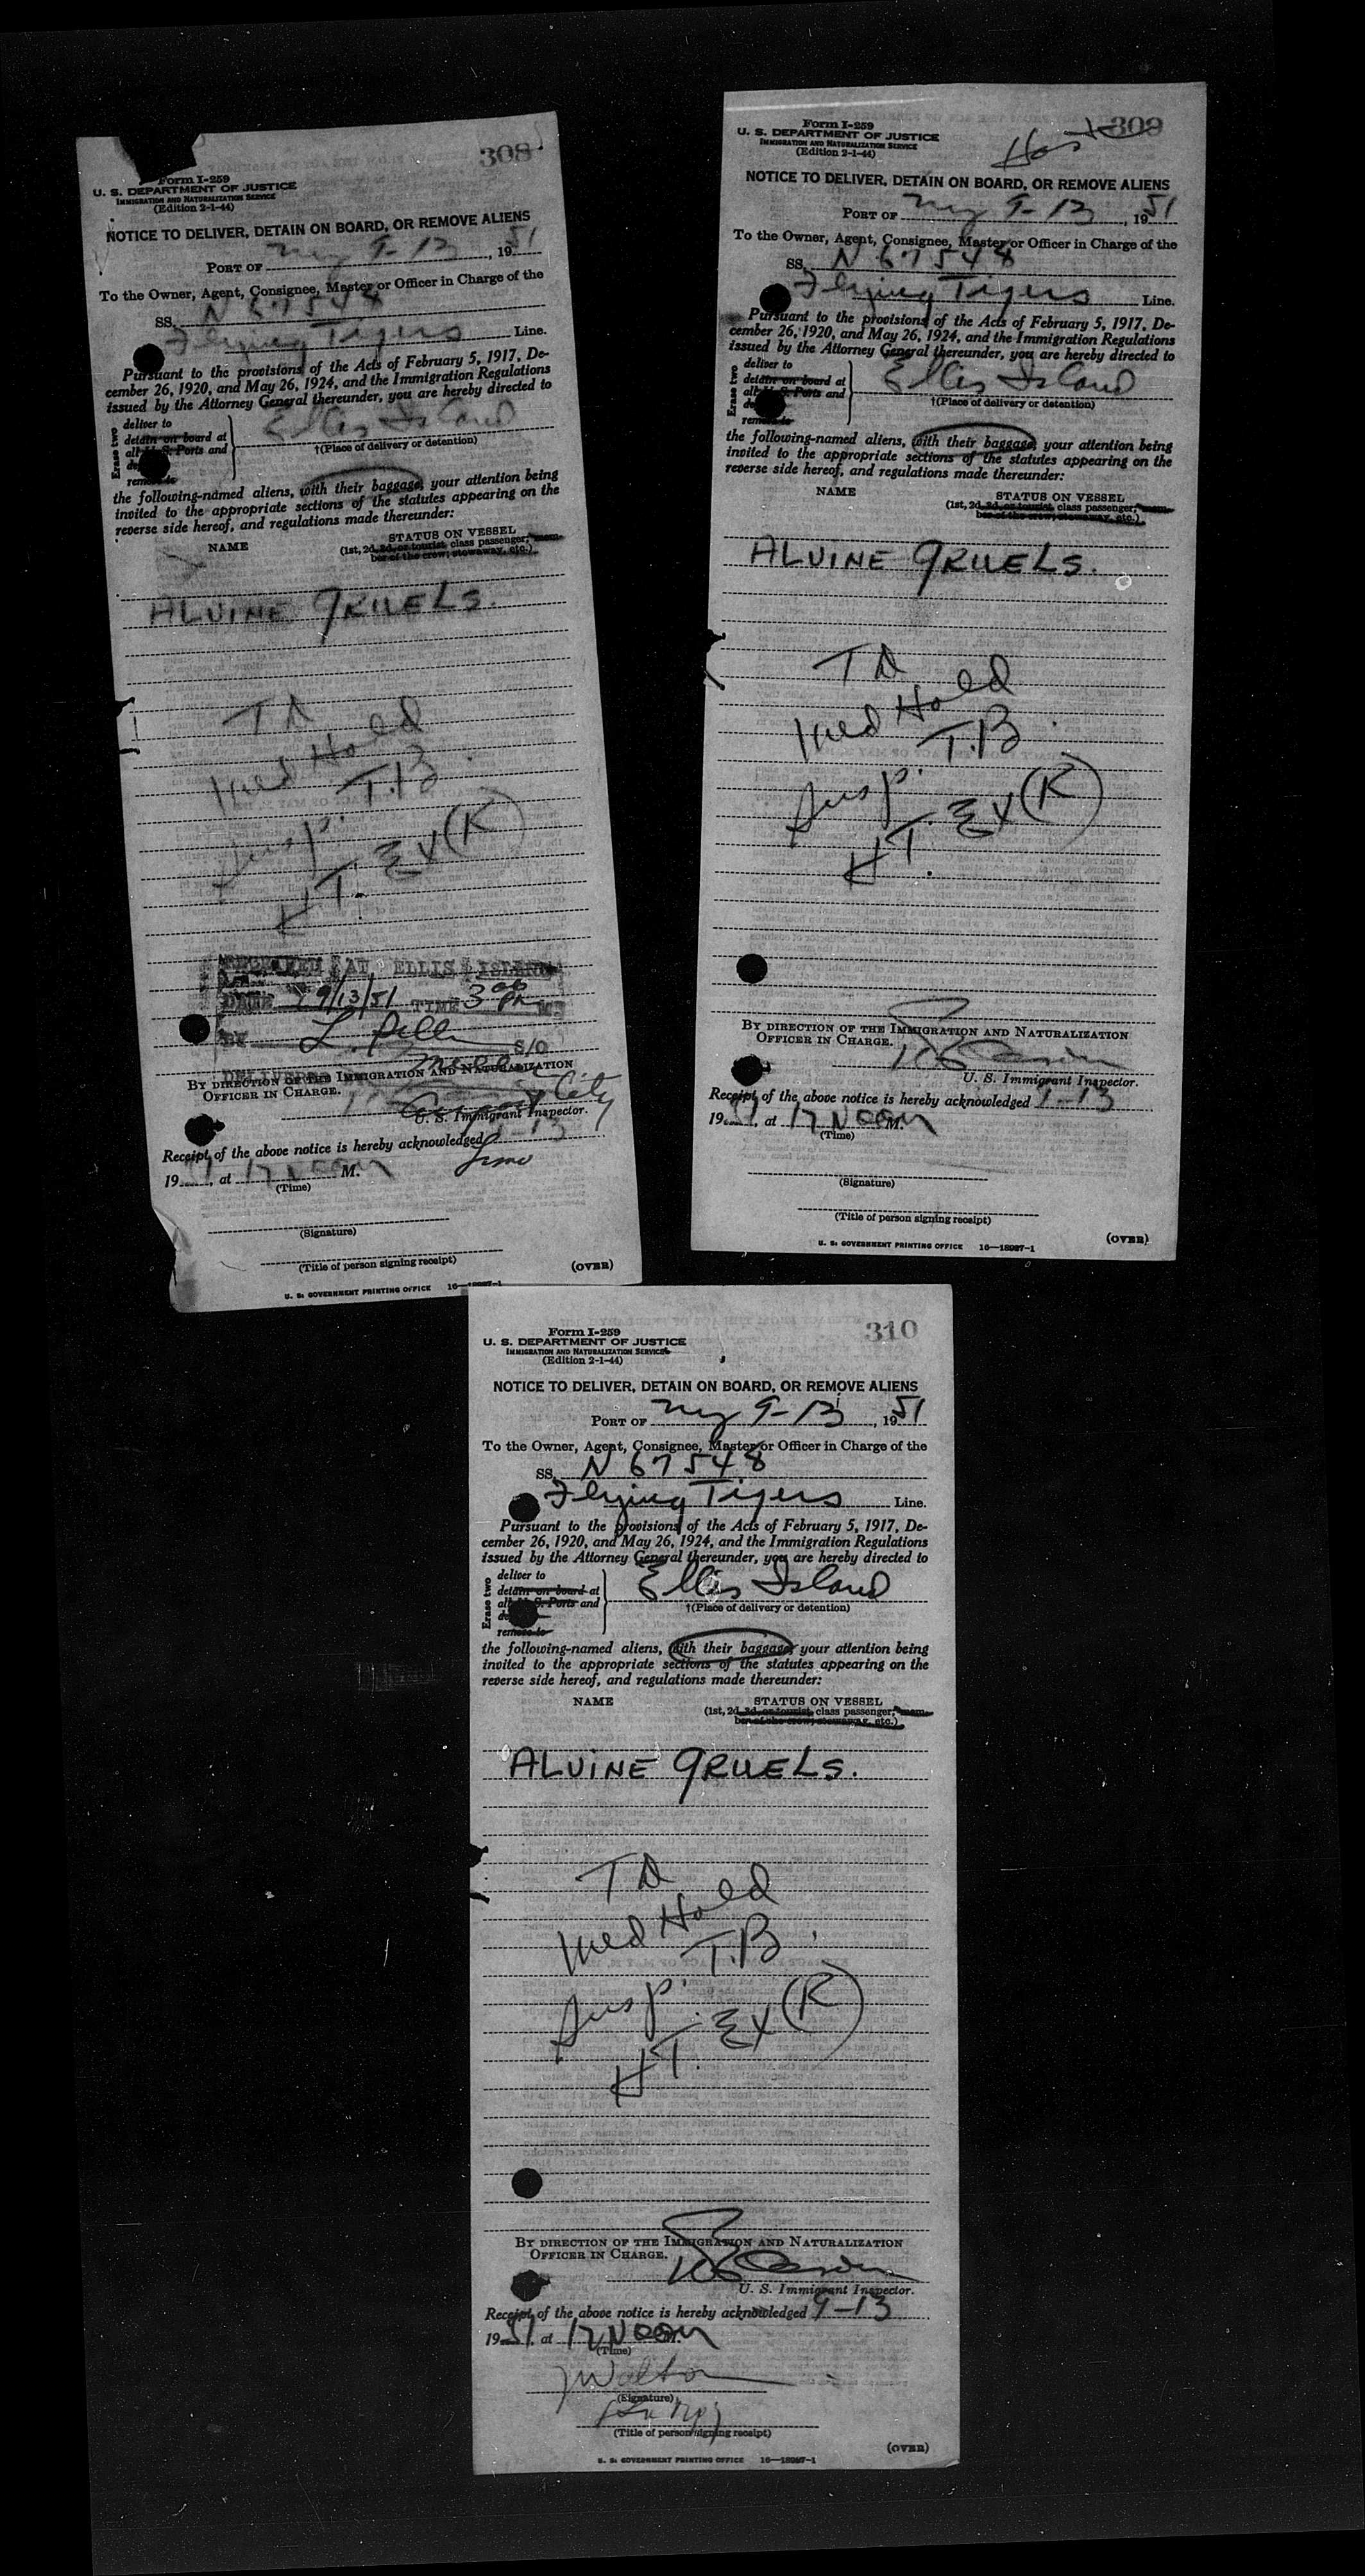 308
Form I-259
U. S. DEPARTMENT OF JUSTICE
IMMIGRATION AND NATURALIZATION SERVICE
(Edition 2-1-44)
NOTICE TO DELIVER, DETAIN ON BOARD, OR REMOVE ALIENS
PORT OF NY 9-13, 1951
To the Owner, Agent, Consignee, Master or Officer in Charge of the
SS. N 67548
Flying Tigers Line.
Pursuant to the provisions of the Acts of February 5, 1917, De-
cember 26, 1920, and May 26, 1924, and the Immigration Regulations
issued by the Attorney General thereunder, you are hereby directed to
Erase two
deliver to
detain on board at
all U. S. Ports and
remove to
Ellis Island
†(Place of delivery or detention)
the following-named aliens, with their baggage, your attention being
invited to the appropriate sections of the statutes appearing on the
reverse side hereof, and regulations made thereunder:
NAME STATUS ON VESSEL
(1st, 2d, 3d, or tourist, class passenger, mem-
ber of the crew, stowaway, etc.)
ALVINE GRUELS.
TD
Med Hold
T.B.
Susp.
HT. Ex (R)
RECEIVED AT ELLIS ISLAND
DATE 9/13/51 TIME 3 00 PM
BY L. S/O
DELIVERED
BY DIRECTION OF THE IMMIGRATION AND NATURALIZATION
OFFICER IN CHARGE.
City
U. S. Immigrant Inspector.
Receipt of the above notice is hereby acknowledged 9-13
1951, at 12 NOON M.
(Time)
(Signature)
(Title of person signing receipt)
(OVER)
U. S. GOVERNMENT PRINTING OFFICE 16—18987-1
309
Form I-259
U. S. DEPARTMENT OF JUSTICE
IMMIGRATION AND NATURALIZATION SERVICE
(Edition 2-1-44)
NOTICE TO DELIVER, DETAIN ON BOARD, OR REMOVE ALIENS
PORT OF NY 9-13, 1951
To the Owner, Agent, Consignee, Master or Officer in Charge of the
SS. N 67548
Flying Tigers Line.
Pursuant to the provisions of the Acts of February 5, 1917, De-
cember 26, 1920, and May 26, 1924, and the Immigration Regulations
issued by the Attorney General thereunder, you are hereby directed to
Erase two
deliver to
detain on board at
all U. S. Ports and
remove to
Ellis Island
†(Place of delivery or detention)
the following-named aliens, with their baggage, your attention being
invited to the appropriate sections of the statutes appearing on the
reverse side hereof, and regulations made thereunder:
NAME STATUS ON VESSEL
(1st, 2d, 3d, or tourist, class passenger, mem-
ber of the crew, stowaway, etc.)
ALVINE GRUELS.
TD
Med Hold
T.B.
Susp.
HT. Ex (R)
BY DIRECTION OF THE IMMIGRATION AND NATURALIZATION
OFFICER IN CHARGE.
U. S. Immigrant Inspector.
Receipt of the above notice is hereby acknowledged 9-13
1951, at 12 NOON M.
(Time)
(Signature)
(Title of person signing receipt)
(OVER)
U. S. GOVERNMENT PRINTING OFFICE 16—18987-1
310
Form I-259
U. S. DEPARTMENT OF JUSTICE
IMMIGRATION AND NATURALIZATION SERVICE
(Edition 2-1-44)
NOTICE TO DELIVER, DETAIN ON BOARD, OR REMOVE ALIENS
PORT OF NY 9-13, 1951
To the Owner, Agent, Consignee, Master or Officer in Charge of the
SS. N 67548
Flying Tigers Line.
Pursuant to the provisions of the Acts of February 5, 1917, De-
cember 26, 1920, and May 26, 1924, and the Immigration Regulations
issued by the Attorney General thereunder, you are hereby directed to
Erase two
deliver to
detain on board at
all U. S. Ports and
remove to
Ellis Island
†(Place of delivery or detention)
the following-named aliens, with their baggage, your attention being
invited to the appropriate sections of the statutes appearing on the
reverse side hereof, and regulations made thereunder:
NAME STATUS ON VESSEL
(1st, 2d, 3d, or tourist, class passenger, mem-
ber of the crew, stowaway, etc.)
ALVINE GRUELS.
TD
Med Hold
T.B.
Susp.
HT. Ex (R)
BY DIRECTION OF THE IMMIGRATION AND NATURALIZATION
OFFICER IN CHARGE.
U. S. Immigrant Inspector.
Receipt of the above notice is hereby acknowledged 9-13
1951, at 12 NOON M.
(Time)
J Walton
(Signature)
(Title of person signing receipt)
(OVER)
U. S. GOVERNMENT PRINTING OFFICE 16—18987-1